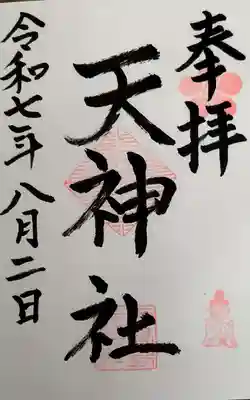 奉拝
天神社
令和七年八月二日